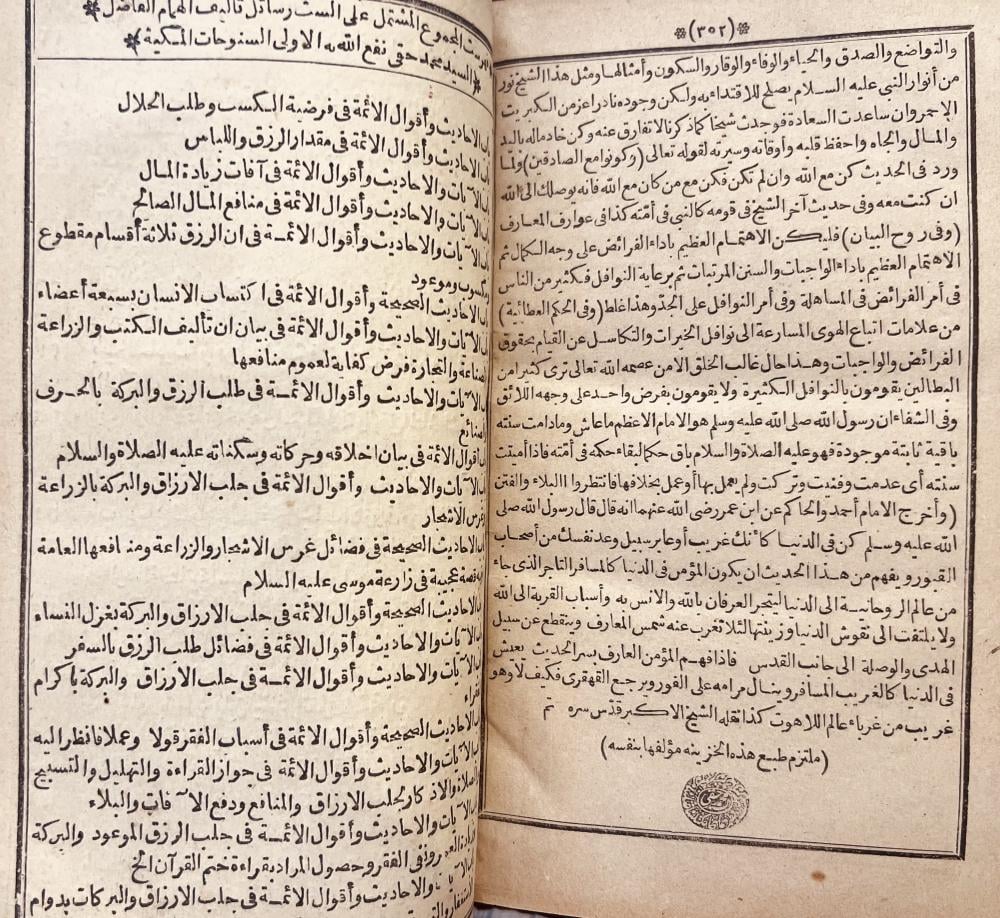 ﴿٣٥٢﴾
والتواضع والصدق والحياء والوفاء والوقار والسكون وأمثالها ومثل هذا الشيخ نور
من أنوار النبي عليه السلام يصلح للاقتداء به ولكن وجوده نادر اعز من الكبريت
الاحمر وان ساعدت السعادة فوجدت شيخا كما ذكرنا لا تفارق عنه وكن خادما له باليد
والمال والجاه واحفظ قلبه وأوقاته وسيرته لقوله تعالى (وكونوا مع الصادقين) ولما
ورد فى الحديث كن مع الله وان لم تكن فكن مع من كان مع الله فانه يوصلك الى الله
ان كنت معه وفى حديث آخر الشيخ فى قومه كالنبى فى أمته كذا فى عوارف المعارف
(وفى روح البيان) فليكن الاهتمام العظيم باداء الفرائض على وجه الكمال ثم
الاهتمام العظيم باداء الواجبات والسنن المرتبات ثم برعاية النوافل فكثير من الناس
فى أمر الفرائض فى المساهلة وفى أمر النوافل على الجد وهذا غلط (وفى الحكم العطائية)
من علامات اتباع الهوى المسارعة الى نوافل الخيرات والتكاسل عن القيام بحقوق
الفرائض والواجبات وهذا حال غالب الخلق الا من عصمه الله تعالى ترى كثيرا من
البطالين يقومون بالنوافل الكثيرة ولا يقومون بفرض واحد على وجهه اللائق
وفى الشفاء ان رسول الله صلى الله عليه وسلم هو الامام الاعظم ما عاش وما دامت سنته
باقية ثابتة موجودة فهو عليه الصلاة والسلام باق حكما لبقاء حكمه فى أمته فاذا أميتت
سنته أى عدمت وفنيت وتركت ولم يعمل بها أو عمل بخلافها فانتظروا البلاء والفتن
(وأخرج الامام أحمد والحاكم عن ابن عمر رضى الله عنهما انه قال قال رسول الله صلى
الله عليه وسلم كن فى الدنيا كأنك غريب أو عابر سبيل وعد نفسك من أصحاب
القبور ويفهم من هذا الحديث ان يكون المؤمن فى الدنيا كالمسافر التاجر الذى جاء
من عالم الروحانية الى الدنيا ليتجر العرفان بالله والانس به وأسباب القربة الى الله
ولا يلتفت الى نقوش الدنيا وزينتها لئلا تغرب عنه شمس المعارف وينقطع عن سبيل
الهدى والوصلة الى جانب القدس فاذا فهم المؤمن العارف بسر الحديث يعيش
فى الدنيا كالغريب المسافر وينال مرامه على الفور ويرجع القهقرى فكيف لا وهو
غريب من غرباء عالم اللاهوت كذا نقله الشيخ الاكبر قدس سره تم
(ملتزم طبع هذه الخزينه مؤلفها بنفسه)
المجموع المشتمل على الست رسائل تأليف الهمام الفاضل
السيد محمد حقى نفع الله به الاولى السنوحات المكية
الاحاديث وأقوال الائمة فى فرضية الكسب وطلب الحلال
الاحاديث وأقوال الائمة فى مقدار الرزق واللباس
الآيات والاحاديث وأقوال الائمة فى آفات زيادة المال
الآيات والاحاديث وأقوال الائمة فى منافع المال الصالح
الآيات والاحاديث وأقوال الائمة فى ان الرزق ثلاثة أقسام مقطوع
ومكسوب وموعود
الاحاديث الصحيحة وأقوال الائمة فى اكتساب الانسان بسبعة أعضاء
الآيات والاحاديث وأقوال الائمة فى بيان ان تأليف الكتب والزراعة
والصناعة والتجارة فرض كفاية لعموم منافعها
الآيات والاحاديث وأقوال الائمة فى طلب الرزق والبركة بالحرف
والصنائع
أقوال الائمة فى بيان اخلاقه وحركاته وسكناته عليه الصلاة والسلام
الآيات والاحاديث وأقوال الائمة فى جلب الارزاق والبركة بالزراعة
وغرس الاشجار
الاحاديث الصحيحة فى فضائل غرس الاشجار والزراعة ومنافعها العامة
قصة عجيبة فى زارعة موسى عليه السلام
الاحاديث الصحيحة وأقوال الائمة فى جلب الارزاق والبركة بغزل النساء
الآيات والاحاديث وأقوال الائمة فى فضائل طلب الرزق بالسفر
الآيات والاحاديث وأقوال الائمة فى جلب الارزاق والبركة باكرام
الفقراء
الاحاديث الصحيحة وأقوال الائمة فى أسباب الفقر قولا وعملا فانظر اليه
الآيات والاحاديث وأقوال الائمة فى جواز القراءة والتهليل والتسبيح
والصلاة والاذكار لجلب الارزاق والمنافع ودفع الآفات والبلاء
الآيات والاحاديث وأقوال الائمة فى جلب الرزق الموعود والبركة
الفقر وحصول المراد بقراءة ختم القرآن الخ
والاحاديث وأقوال الائمة فى جلب الارزاق والبركات بدوام